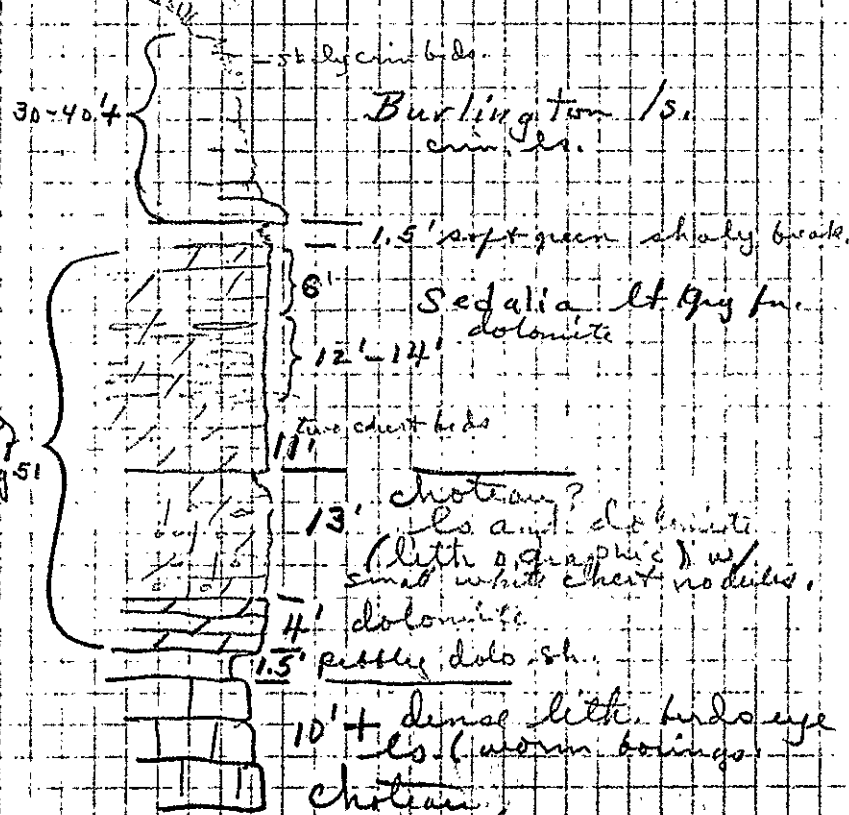 shaly crin beds.
30-40'+
Burlington ls.
crin. ls.
1.5' soft green shaly break.
6'
Sedalia lt gry fn.
dolomite
12'-14'
two chert beds
11'
51
choteau?
13'
ls and dolomite
(lithographic) w/
small white chert nodules.
4' dolomite
1.5' pebbly dolo. sh.
10'+ dense lith. birdseye
ls (worm borings.
Choteau,